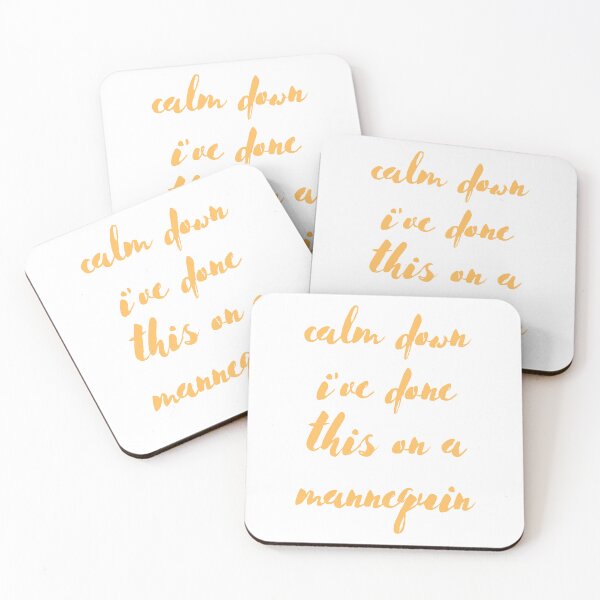 calm down
i've done
a
calm down
i've done
this on a
calm down
i've done
this on
calm down
i've done
this on a
mannequin